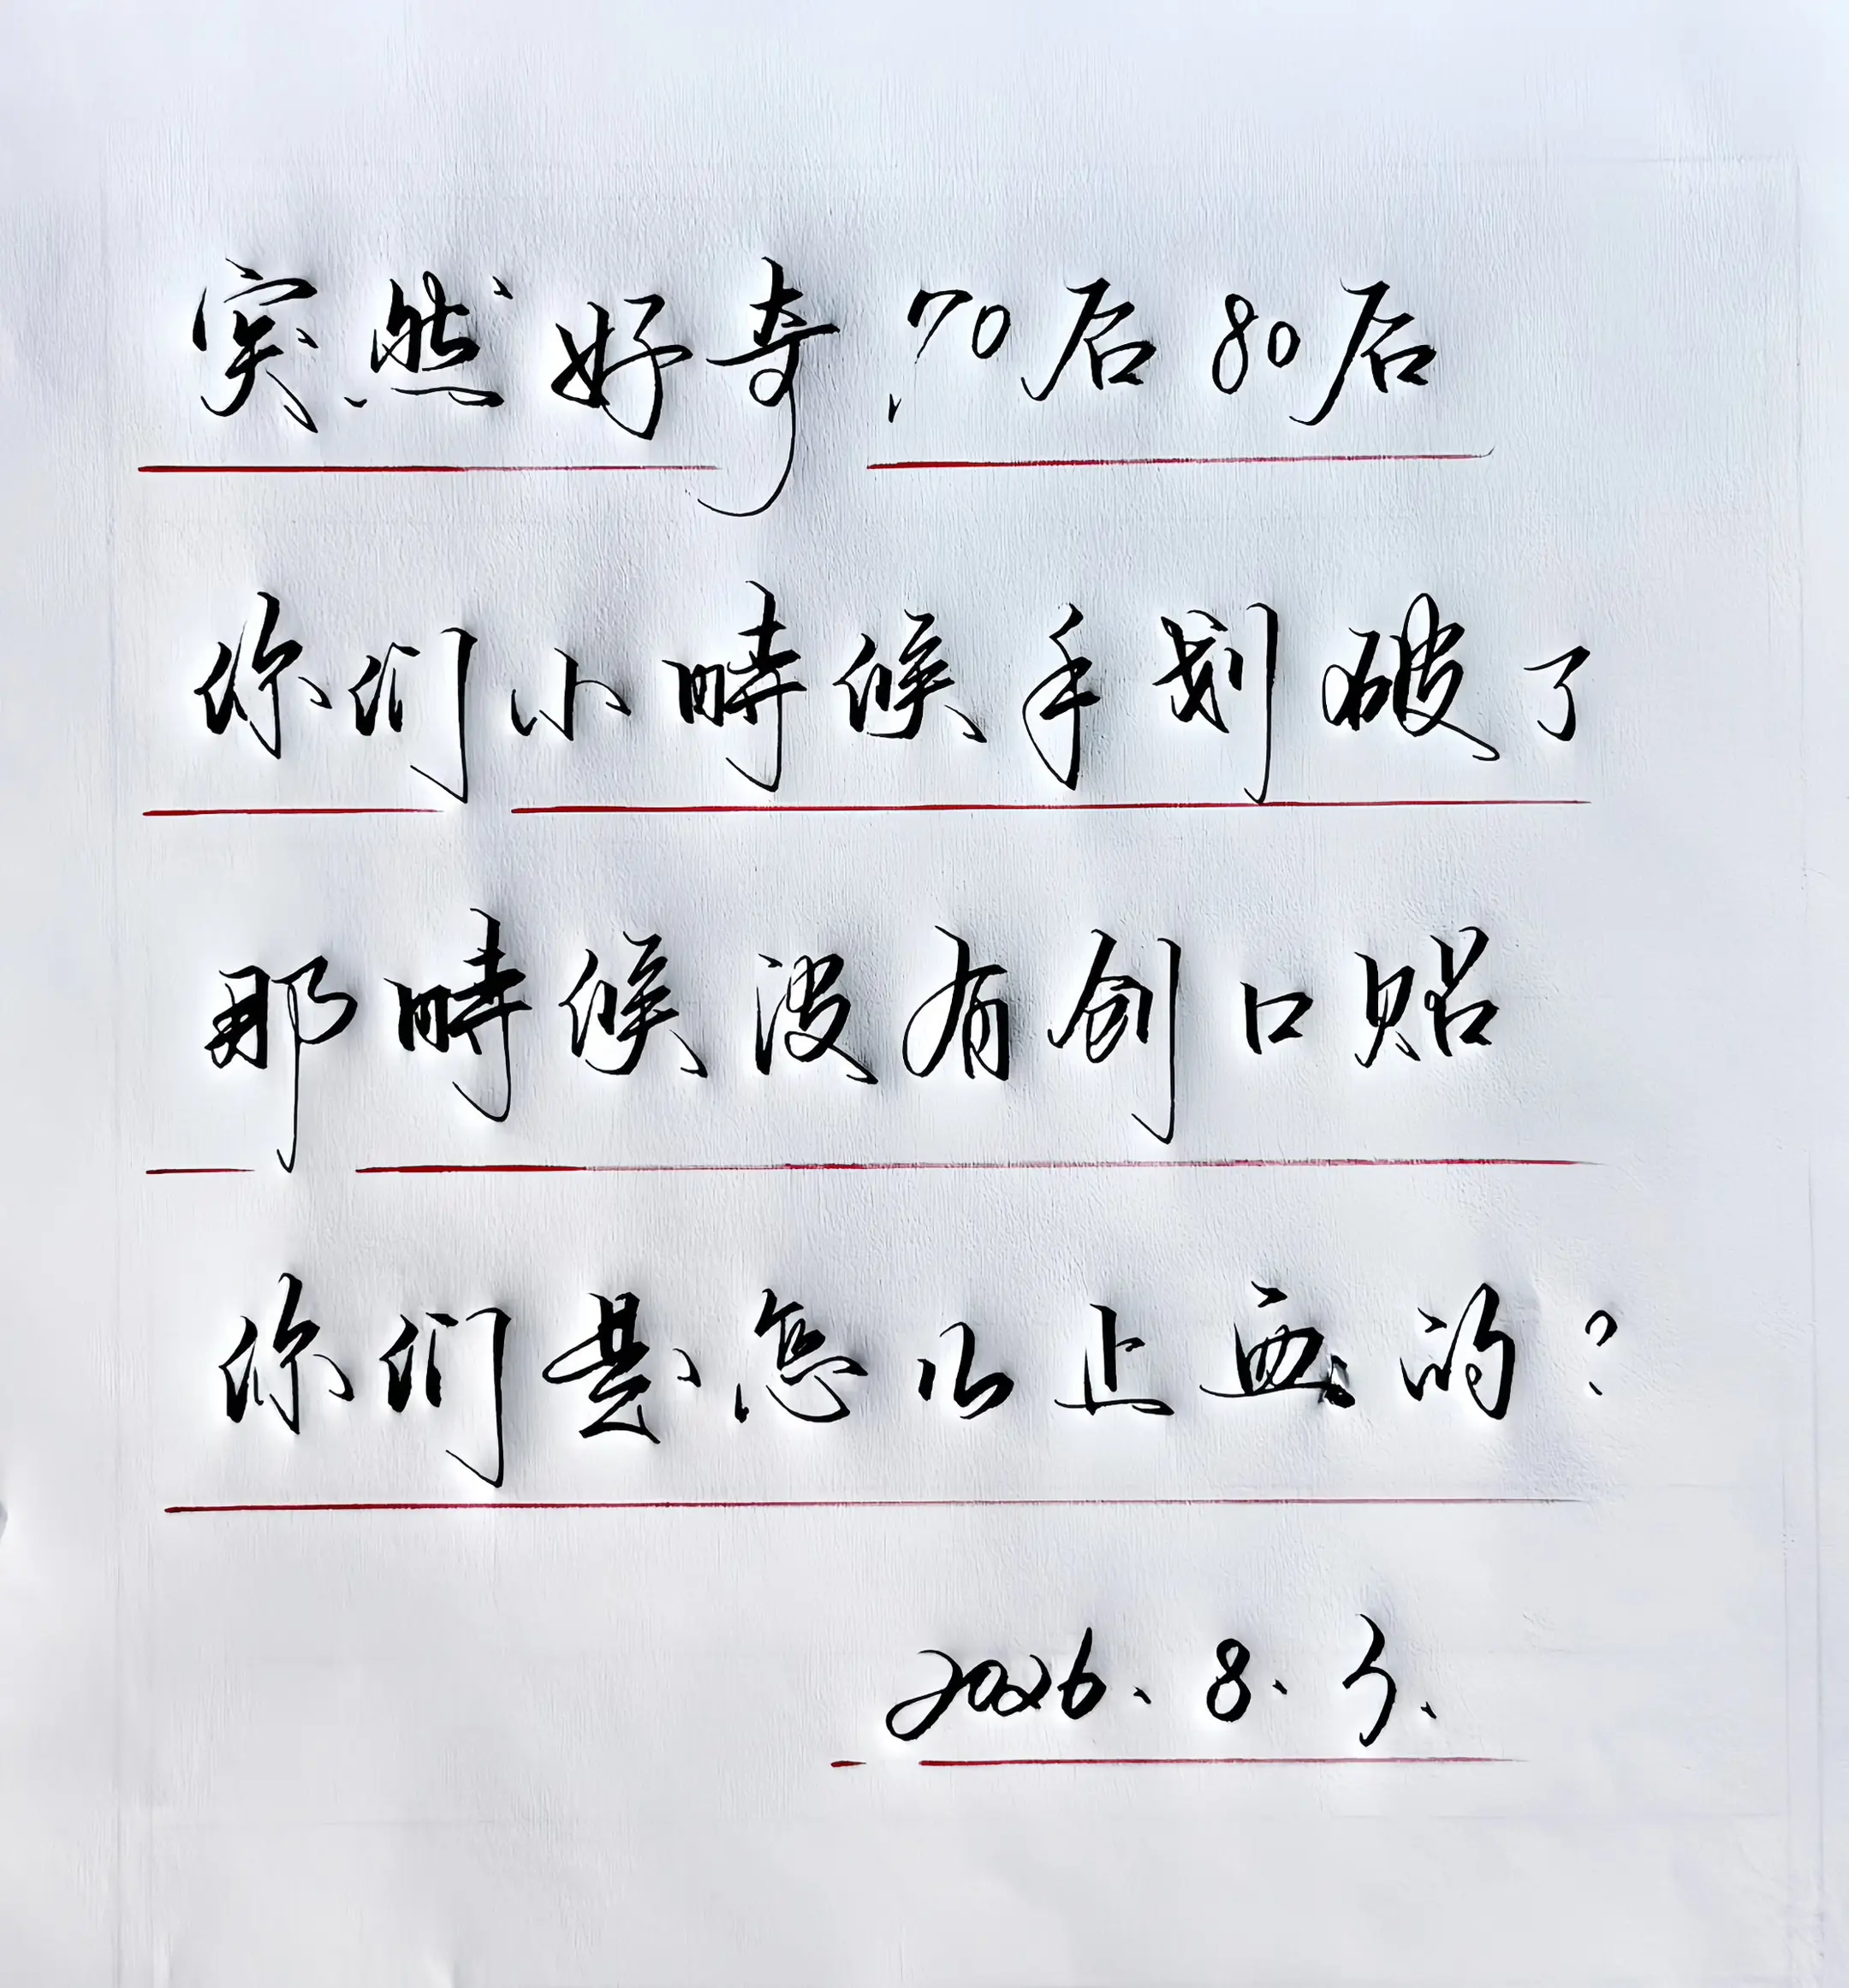 突然好奇,70后80后
你们小時候手划破了
那時候没有创口贴
你们是怎么止血的?
2026.8.3.